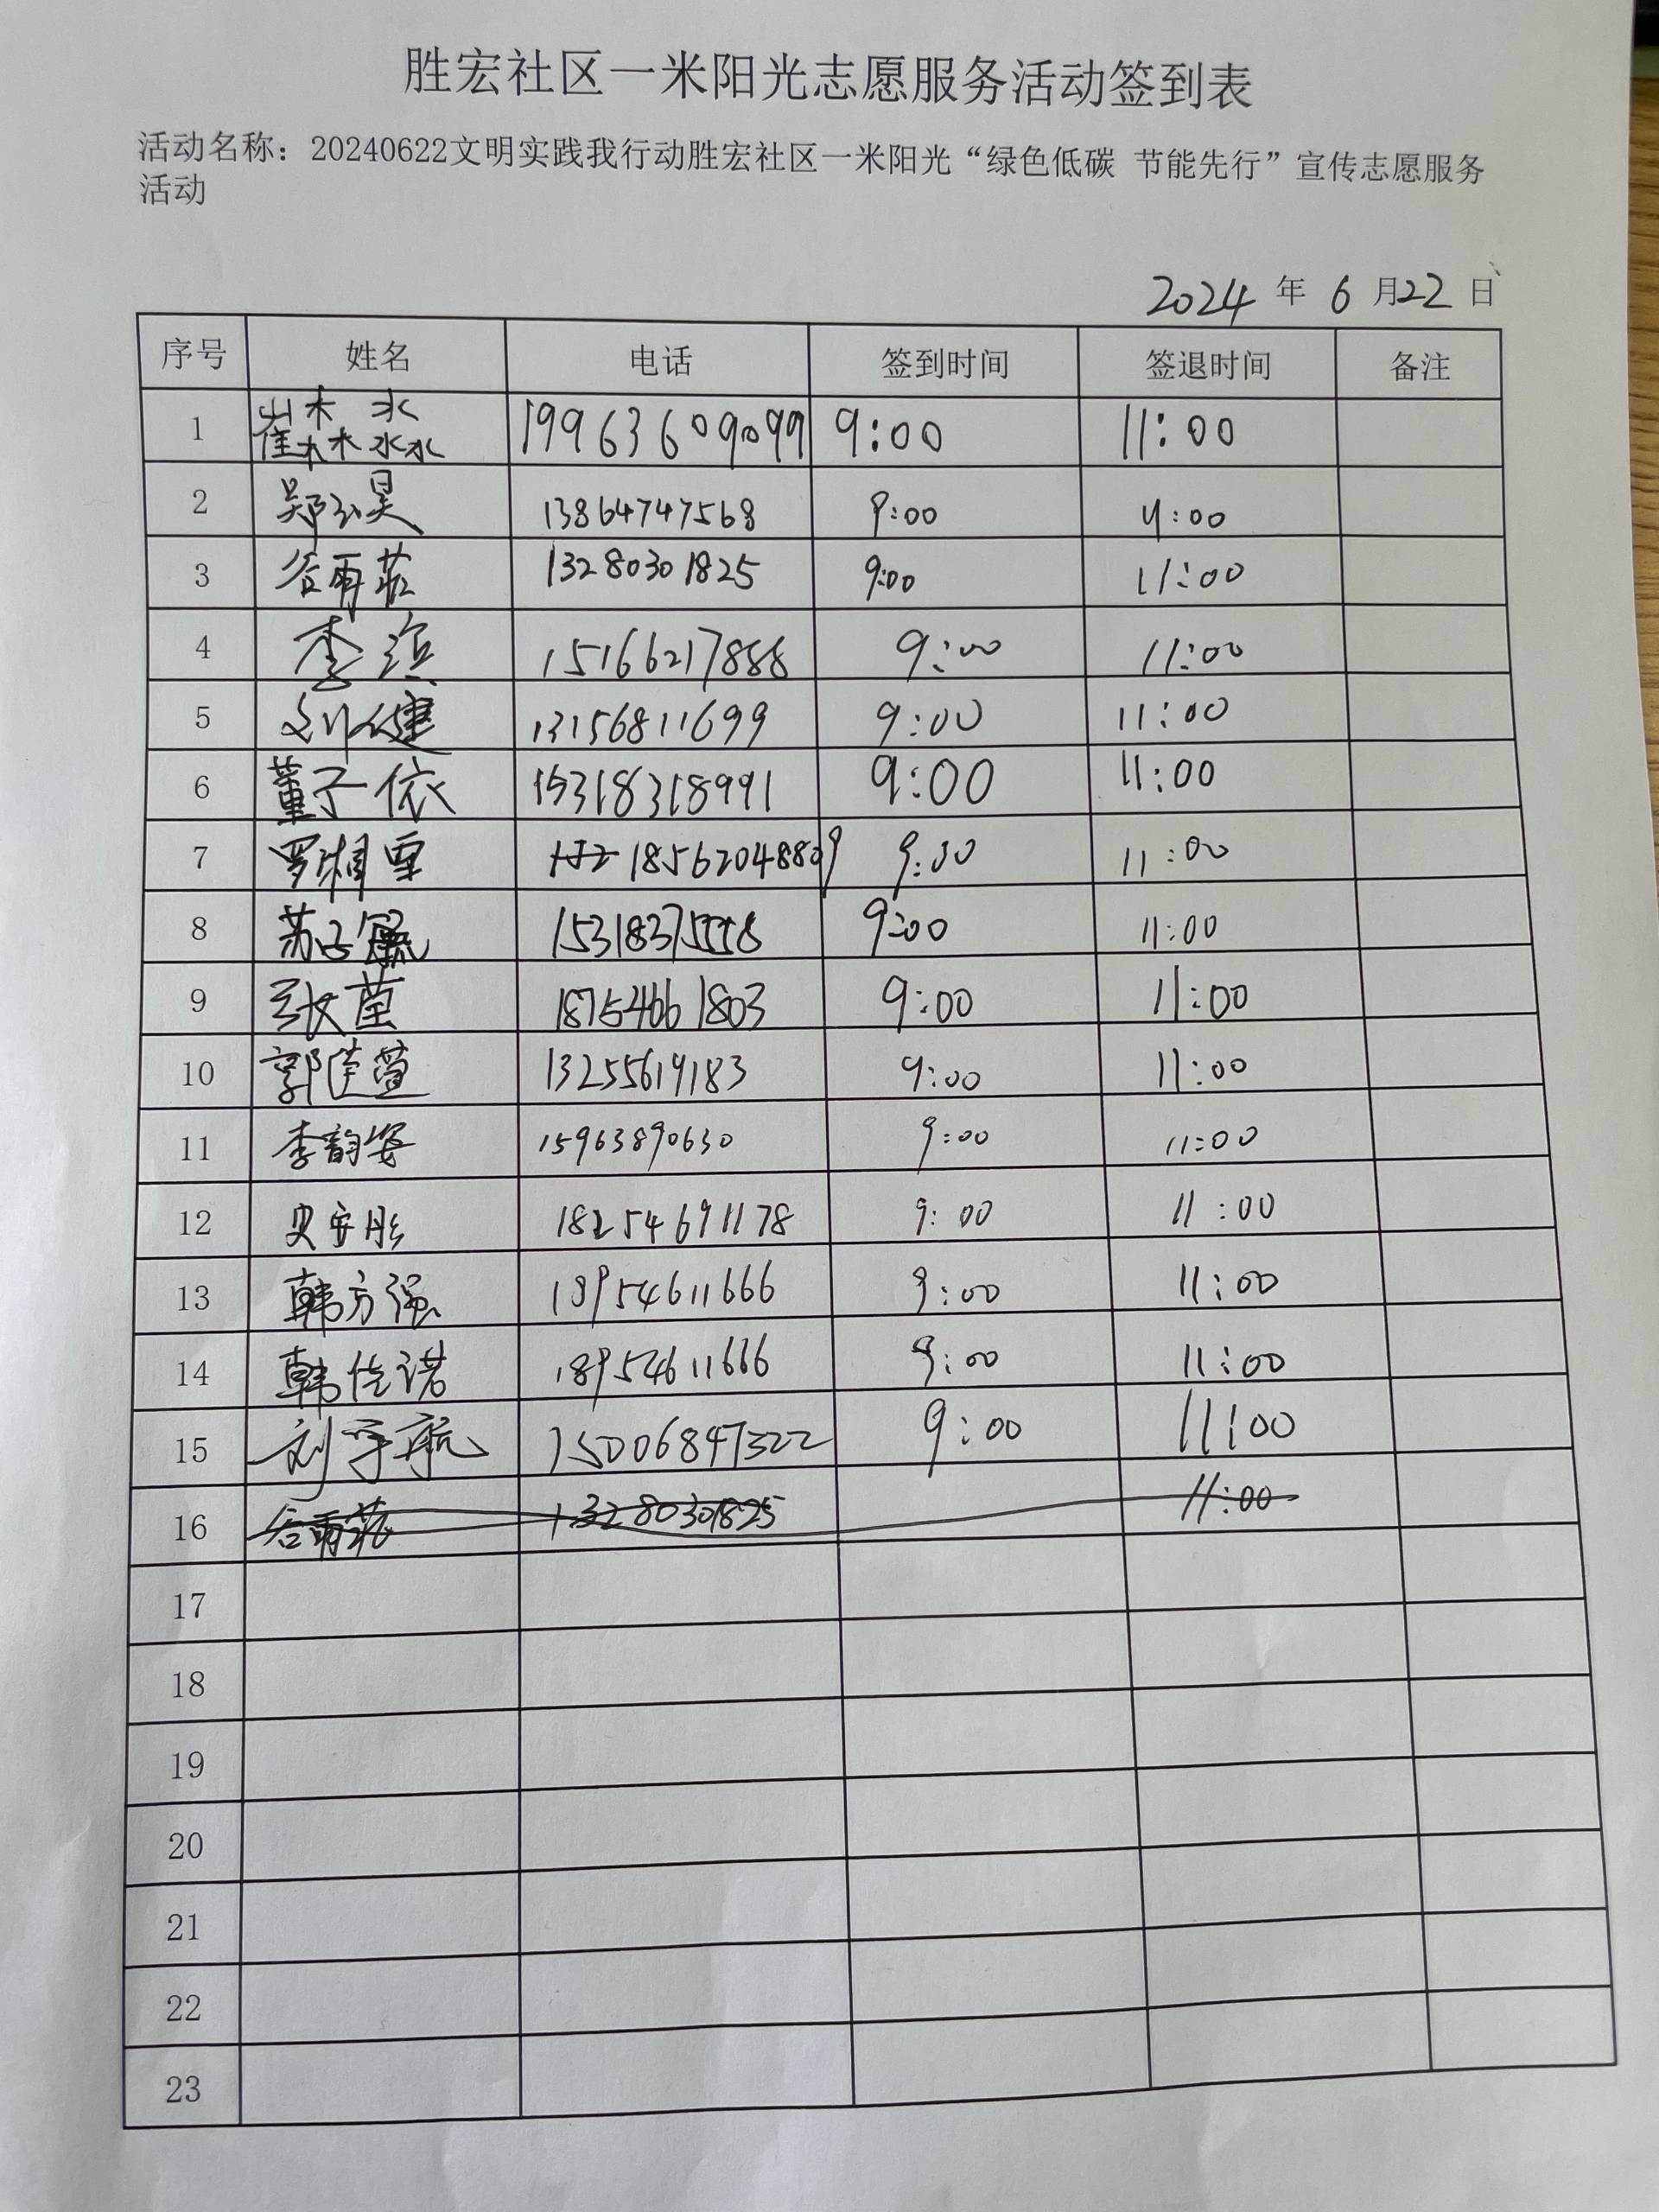 胜宏社区一米阳光志愿服务活动签到表
活动名称：20240622文明实践我行动胜宏社区一米阳光“绿色低碳 节能先行”宣传志愿服务
活动
2024 年 6 月 22 日
序号 姓名 电话 签到时间 签退时间 备注
1 崔森淼 19963609099 9:00 11:00
2 13864747568 9:00 11:00
3 谷雨菲 13280301825 9:00 11:00
4 李滨 15166217888 9:00 11:00
5 刘健 13156811699 9:00 11:00
6 董子依 15318318991 9:00 11:00
7 18562048809 9:00 11:00
8 15318375558 9:00 11:00
9 张菫 18754661803 9:00 11:00
10 郭萱 13255619183 9:00 11:00
11 李韵姿 15963890630 9:00 11:00
12 史安彤 18254691178 9:00 11:00
13 韩方强 18954611666 9:00 11:00
14 韩佳诺 18954611666 9:00 11:00
15 刘宇航 15006847322 9:00 11:00
16 谷雨菲 13280301825 11:00
17
18
19
20
21
22
23